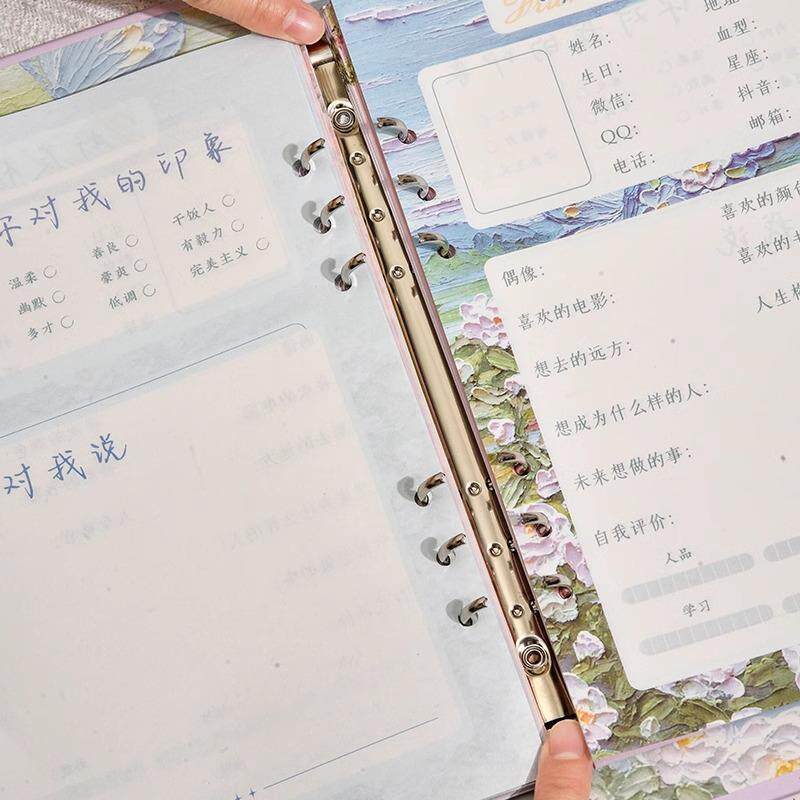 对我的印象
干饭人
善良
有毅力
温柔
豪爽
完美主义
幽默
低调
多才
对我说
姓名:
血型:
生日:
星座:
微信:
抖音:
QQ:
邮箱:
电话:
喜欢的颜
偶像:
喜欢的
喜欢的电影:
人生
想去的远方:
想成为什么样的人:
未来想做的事:
自我评价:
人品
学习